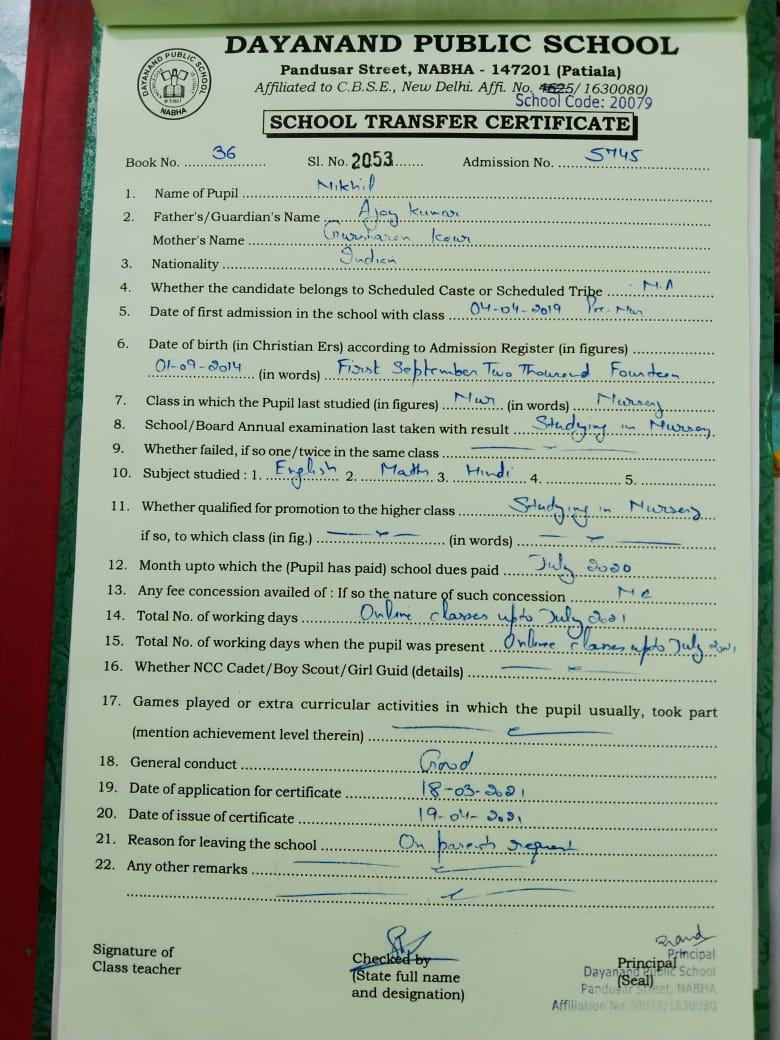 DAYANAND PUBLIC SCHOOL
DAYANAND PUBLIC SCHOOL
NABHA
Pandusar Street, NABHA - 147201 (Patiala)
Affiliated to C.B.S.E., New Delhi. Affi. No. 4625/1630080)
School Code: 20079
SCHOOL TRANSFER CERTIFICATE
Book No. 36 Sl. No. 2053 Admission No. 5745
1. Name of Pupil Nikhil
2. Father's/Guardian's Name Ajay Kumar
Mother's Name Gursharan Kaur
3. Nationality Indian
4. Whether the candidate belongs to Scheduled Caste or Scheduled Tribe N.A
5. Date of first admission in the school with class 04-04-2019 Pre-Nur
6. Date of birth (in Christian Ers) according to Admission Register (in figures)
01-09-2014 (in words) First September Two Thousand Fourteen
7. Class in which the Pupil last studied (in figures) Nur (in words) Nursery
8. School/Board Annual examination last taken with result Studying in Nursery
9. Whether failed, if so one/twice in the same class
10. Subject studied : 1. English 2. Math 3. Hindi 4. 5.
11. Whether qualified for promotion to the higher class Studying in Nursery
if so, to which class (in fig.) (in words)
12. Month upto which the (Pupil has paid) school dues paid July 2020
13. Any fee concession availed of : If so the nature of such concession
14. Total No. of working days Online classes upto July 2021
15. Total No. of working days when the pupil was present Online classes upto July 2021
16. Whether NCC Cadet/Boy Scout/Girl Guid (details)
17. Games played or extra curricular activities in which the pupil usually, took part
(mention achievement level therein)
18. General conduct Good
19. Date of application for certificate 18-03-2021
20. Date of issue of certificate 19-04-2021
21. Reason for leaving the school On parents request
22. Any other remarks
Signature of
Class teacher
Checked by
(State full name
and designation)
Principal
(Seal)
Principal
Dayanand Public School
Pandusar Street, NABHA
Affiliation No. 20079/1630080